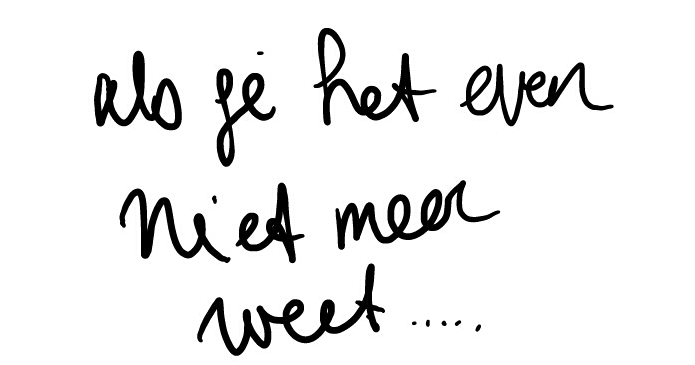 als je het even
niet meer
weet .....